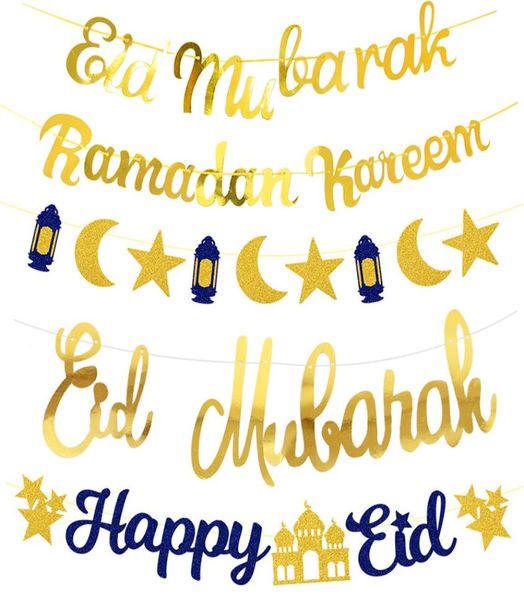 Eid Mubarak
Ramadan Kareem
Eid Mubarak
Happy Eid